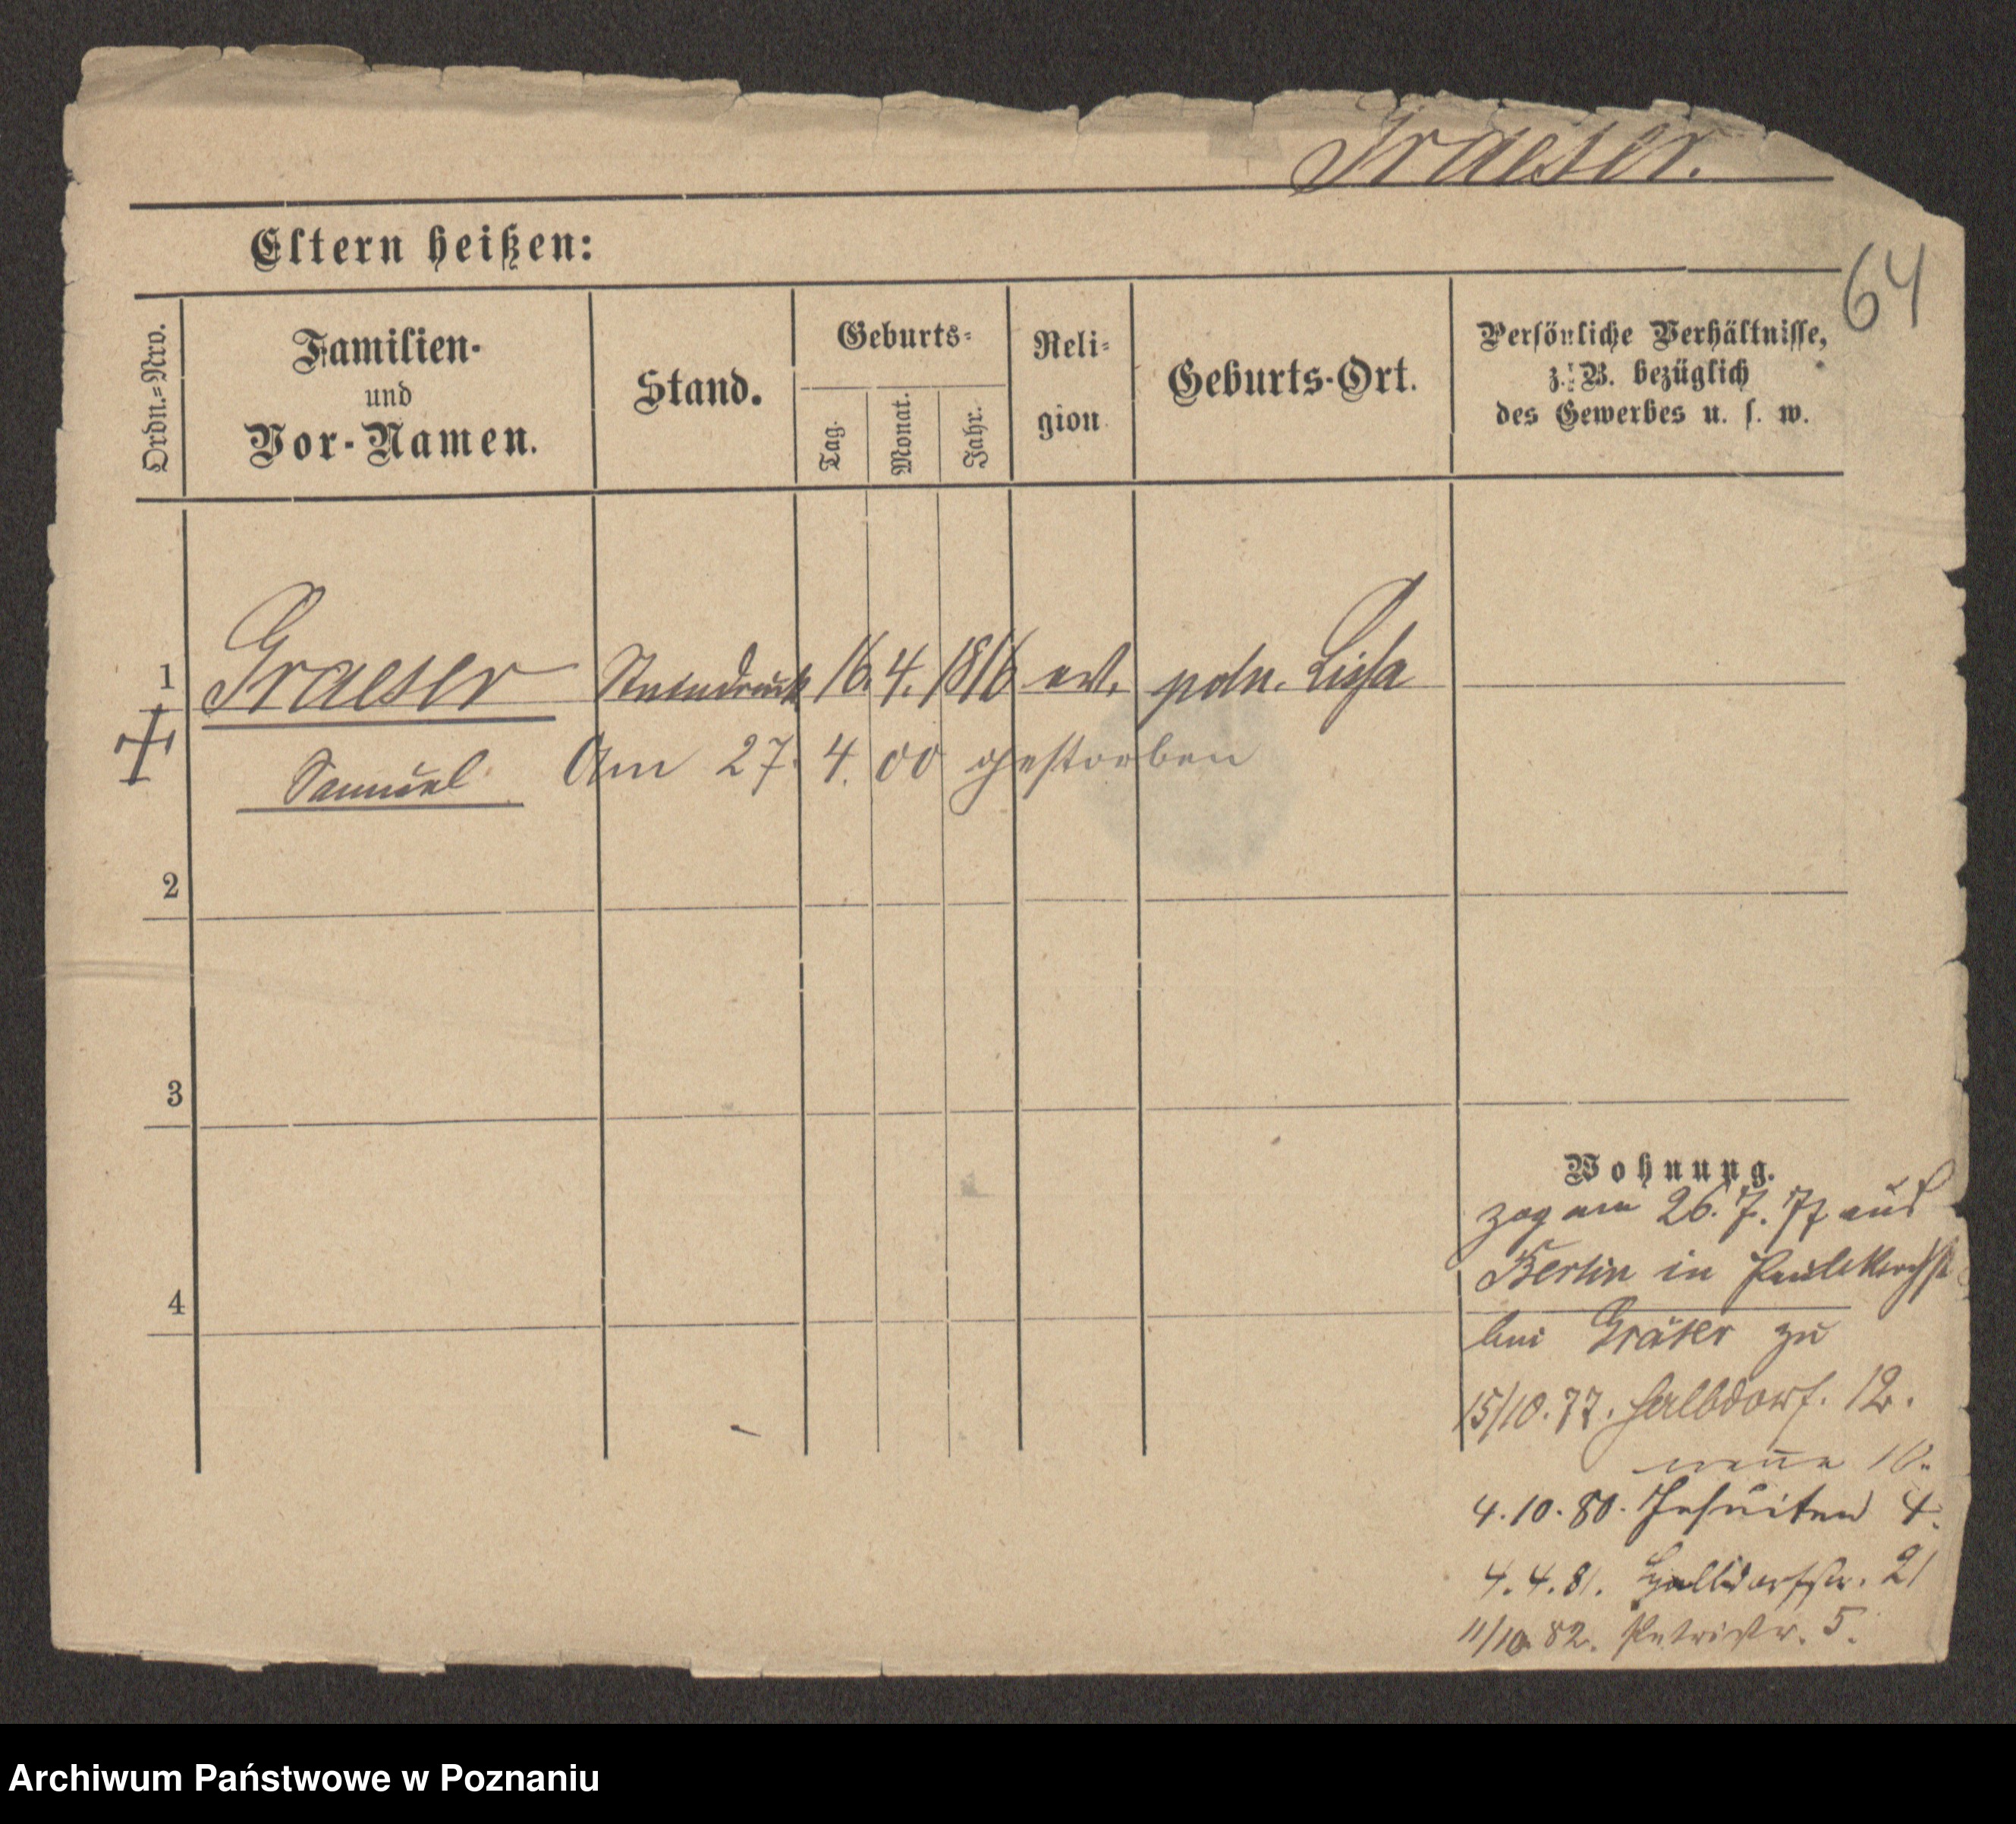 Graeser.
64
Eltern heißen:
Ordn.=Nro.
Familien-
und
Vor-Namen.
Stand.
Geburts=
Tag.
Monat.
Jahr.
Reli=
gion
Geburts-Ort.
Persönliche Verhältnisse,
z. B. bezüglich
des Gewerbes u. s. w.
1 Graeser Steindruck 16. 4. 1816 ev. poln. Lissa
Samuel Am 27. 4. 00 gestorben
2
3
4
Wohnung.
zog am 26. 7. 77 aus
Berlin in Paulikirchst
bei Gräser zu
15/10. 77. Halbdorf. 12.
neue 10.
4. 10. 80. Jesuiten 4.
4. 4. 81. Halbdorfstr. 21
11/10 82. Petristr. 5.
Archiwum Państwowe w Poznaniu